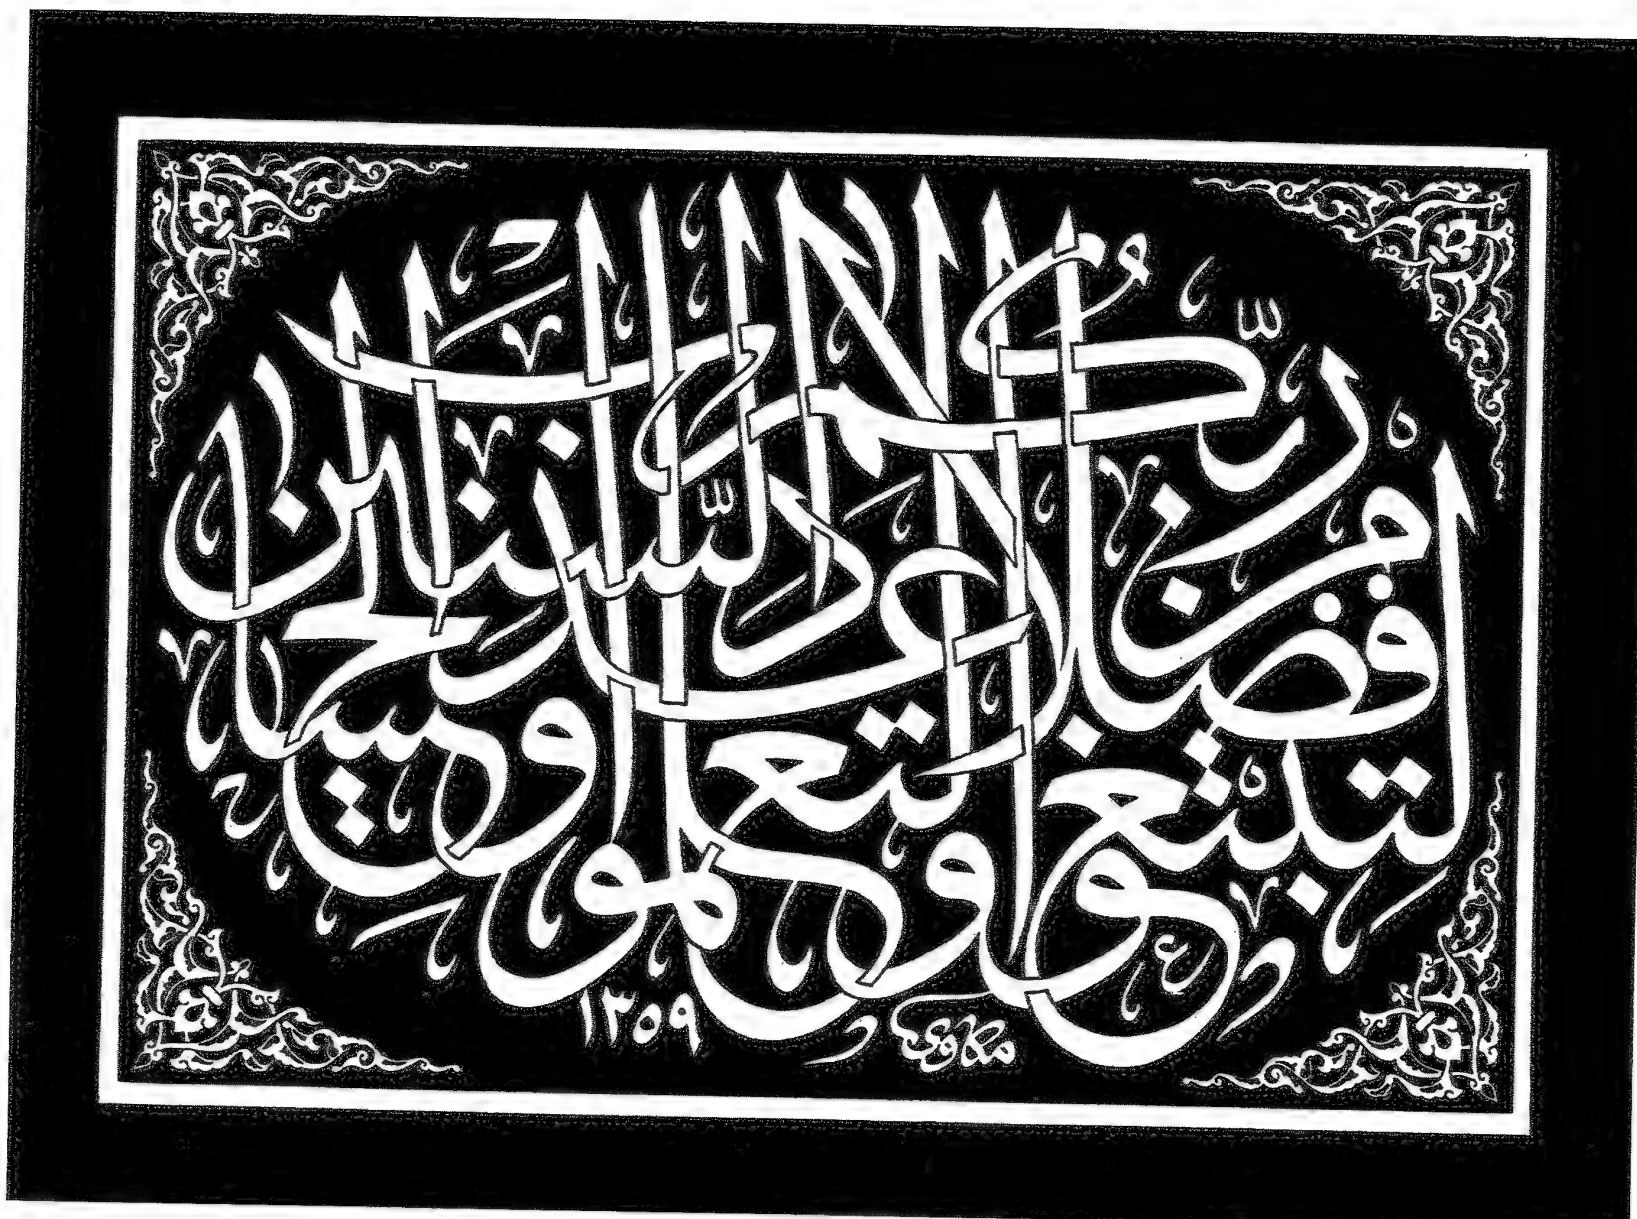 لتبتغوا فضلا من ربكم ولتعلموا عدد السنين والحساب
مكاوى
١٣٥٩